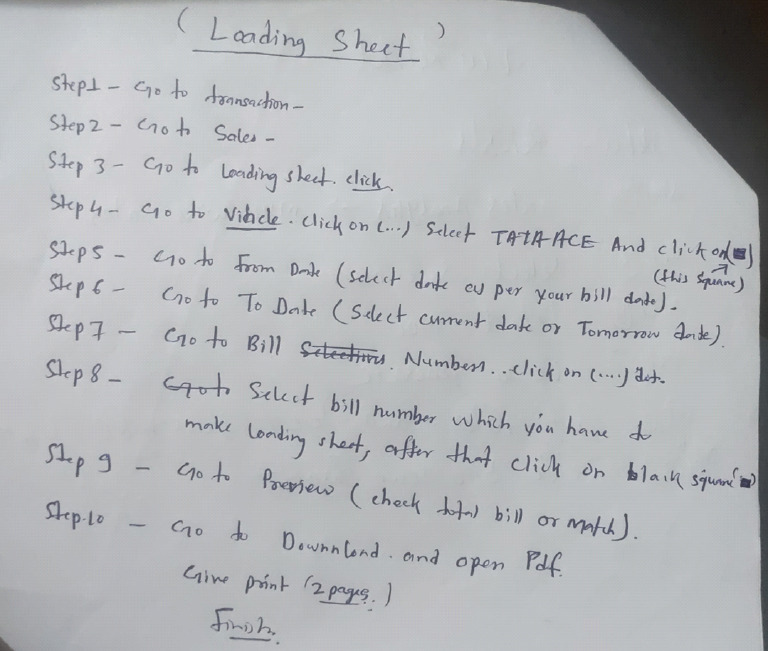 ( Loading Sheet )
Step1 - Go to transaction -
Step 2 - Go to Sales -
Step 3 - Go to Loading sheet. click.
Step 4 - Go to Vihcle. Click on (...) Select TATA ACE And click on (■)
(this square)
Step 5 - Go to From Date (select date as per your bill date).
Step 6 - Go to To Date (Select current date or Tomorrow date).
Step 7 - Go to Bill Selections Numbers.. click on (....) dot.
Step 8 - Go to Select bill number which you have to
make loading sheet, after that click on black square (■)
Step 9 - Go to Preview (check total bill or match).
Step-10 - Go to Download. and open Pdf.
Give print (2 pages.)
Finish.